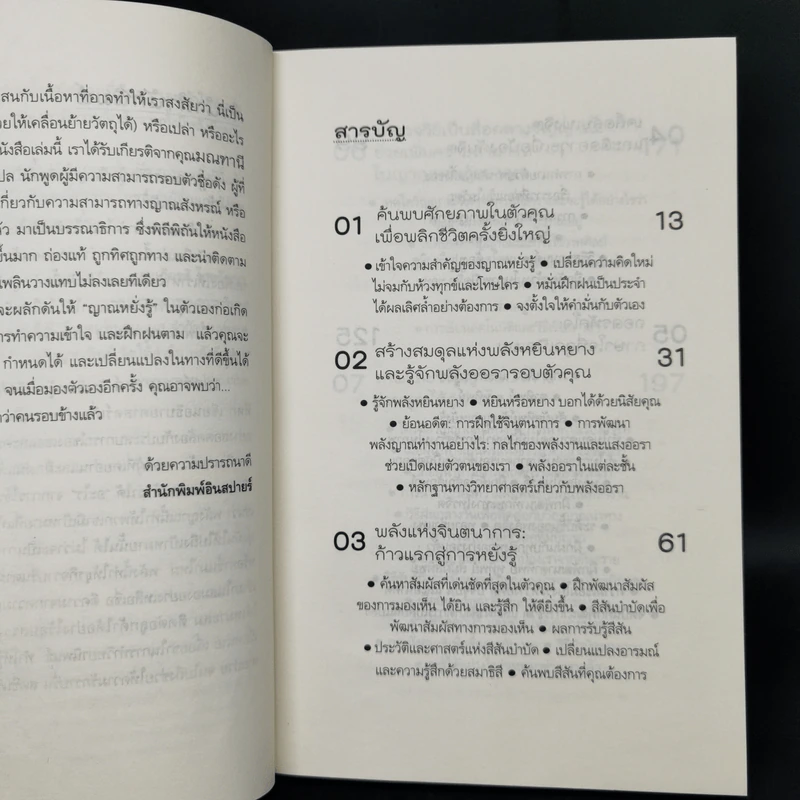 สนกับเนื้อหาที่อาจทำให้เราสงสัยว่า นี่เป็น
ยให้เคลื่อนย้ายวัตถุได้) หรือเปล่า หรืออะไร
นังสือเล่มนี้ เราได้รับเกียรติจากคุณมณฑานี
ปล นักพูดผู้มีความสามารถรอบตัวชื่อดัง ผู้ที่
กี่ยวกับความสามารถทางญาณสังหรณ์ หรือ
ว มาเป็นบรรณาธิการ ซึ่งพิถีพิถันให้หนังสือ
ขึ้นมาก ถ่องแท้ ถูกทิศถูกทาง และน่าติดตาม
เพลินวางแทบไม่ลงเลยทีเดียว
จะผลักดันให้ “ญาณหยั่งรู้” ในตัวเองก่อเกิด
การทำความเข้าใจ และฝึกฝนตาม แล้วคุณจะ
กำหนดได้ และเปลี่ยนแปลงในทางที่ดีขึ้นได้
จนเมื่อมองตัวเองอีกครั้ง คุณอาจพบว่า...
กว่าคนรอบข้างแล้ว
ด้วยความปรารถนาดี
สำนักพิมพ์อินสปายร์
สารบัญ
01 ค้นพบศักยภาพในตัวคุณ 13
เพื่อพลิกชีวิตครั้งยิ่งใหญ่
• เข้าใจความสำคัญของญาณหยั่งรู้ • เปลี่ยนความคิดใหม่
ไม่จมกับห้วงทุกข์และโทษใคร • หมั่นฝึกฝนเป็นประจำ
ได้ผลเลิศล้ำอย่างต้องการ • จงตั้งใจให้คำมั่นกับตัวเอง
02 สร้างสมดุลแห่งพลังหยินหยาง 31
และรู้จักพลังออรารอบตัวคุณ
• รู้จักพลังหยินหยาง • หยินหรือหยาง บอกได้ด้วยนิสัยคุณ
• ย้อนอดีต: การฝึกใช้จินตนาการ • การพัฒนา
พลังญาณทำงานอย่างไร: กลไกของพลังงานและแสงออรา
ช่วยเปิดเผยตัวตนของเรา • พลังออราในแต่ละชั้น
• หลักฐานทางวิทยาศาสตร์เกี่ยวกับพลังออรา
03 พลังแห่งจินตนาการ: 61
ก้าวแรกสู่การหยั่งรู้
• ค้นหาสัมผัสที่เด่นชัดที่สุดในตัวคุณ • ฝึกพัฒนาสัมผัส
ของการมองเห็น ได้ยิน และรู้สึก ให้ดียิ่งขึ้น • สีสันบำบัดเพื่อ
พัฒนาสัมผัสทางการมองเห็น • ผลการรับรู้สีสัน
• ประวัติและศาสตร์แห่งสีสันบำบัด • เปลี่ยนแปลงอารมณ์
และความรู้สึกด้วยสมาธิสี • ค้นพบสีสันที่คุณต้องการ